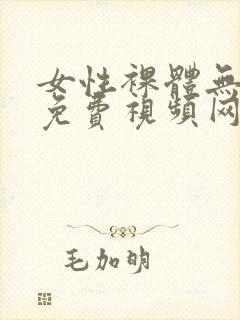 女性裸體無
免費視頻网
毛加明